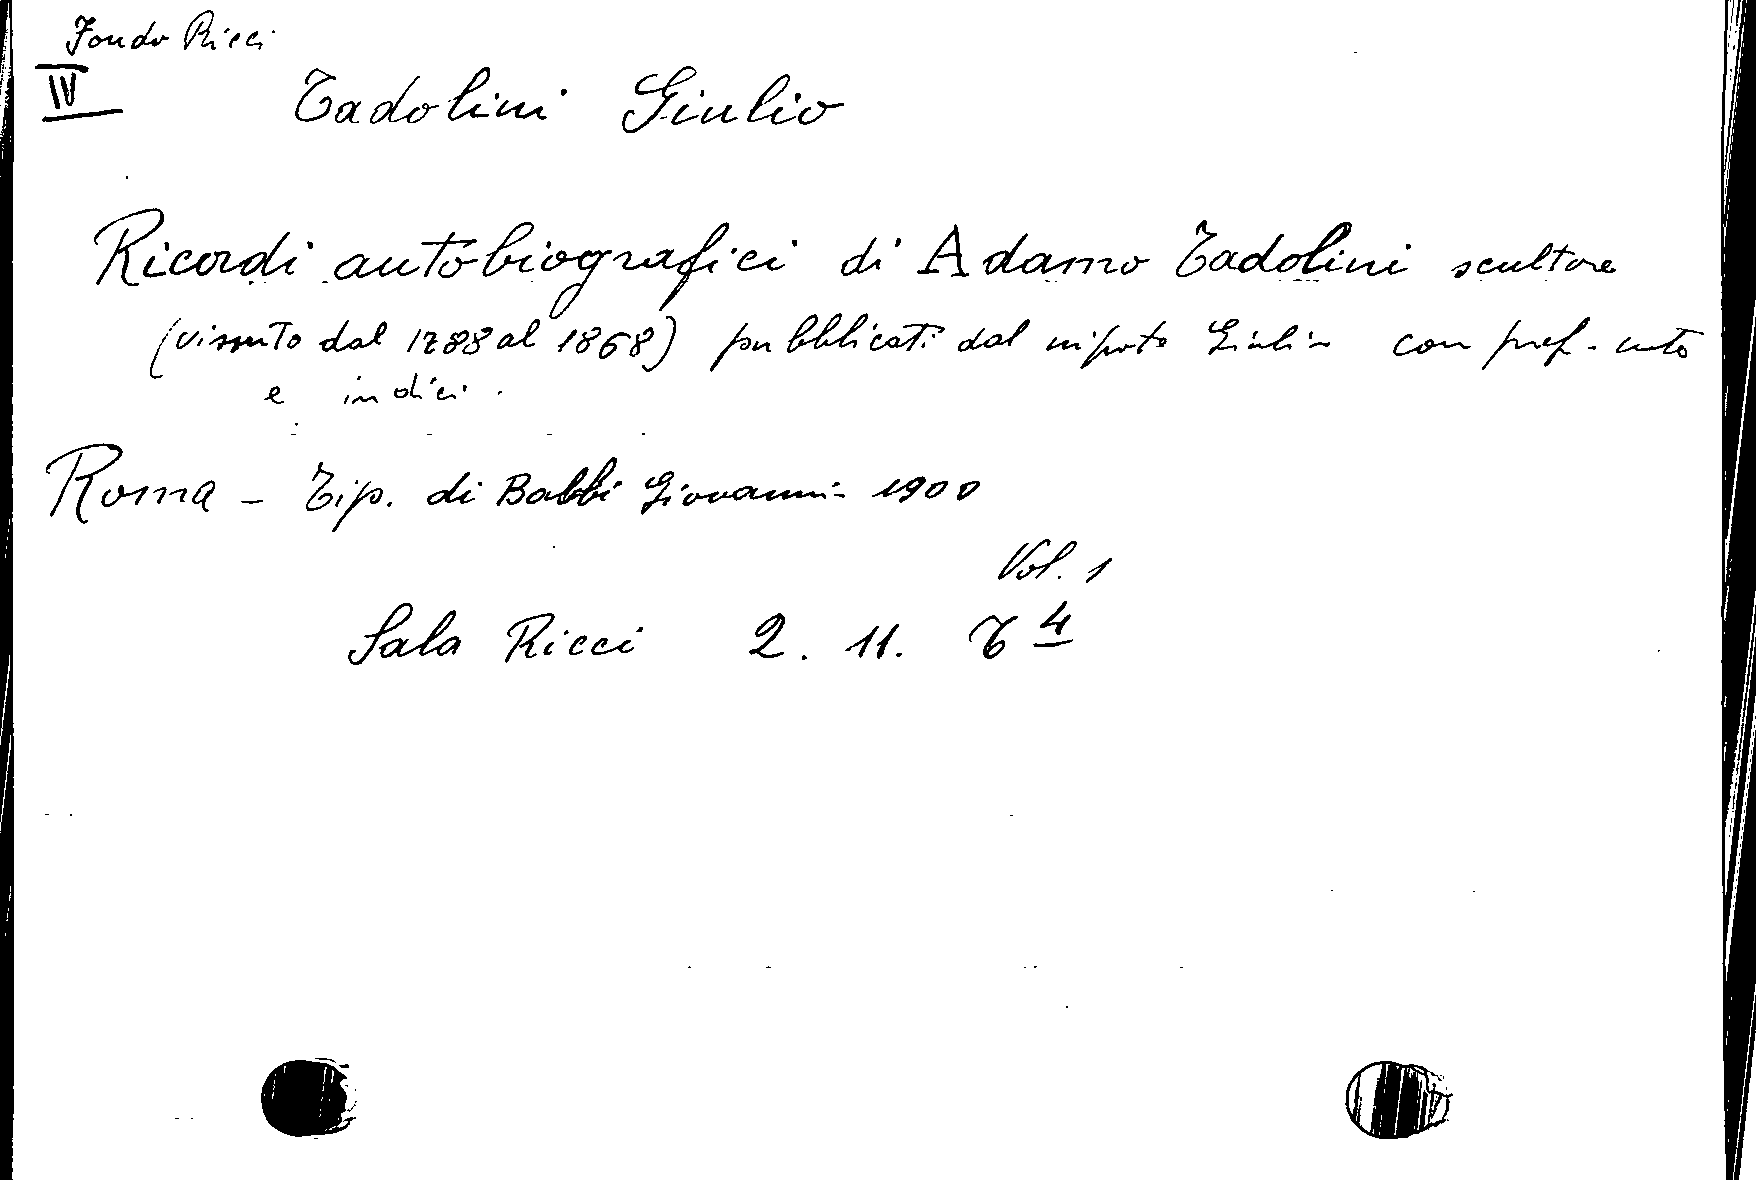 Fondo Ricci
IV
Tadolini Giulio
Ricordi autobiografici di Adamo Tadolini scultore
(vissuto dal 1788 al 1868) pubblicati dal nipote Giulio con pref.
e indici.
Roma - Tip. di Babbi Giovanni - 1900
Vol. 1
Sala Ricci 2. 11. T 4